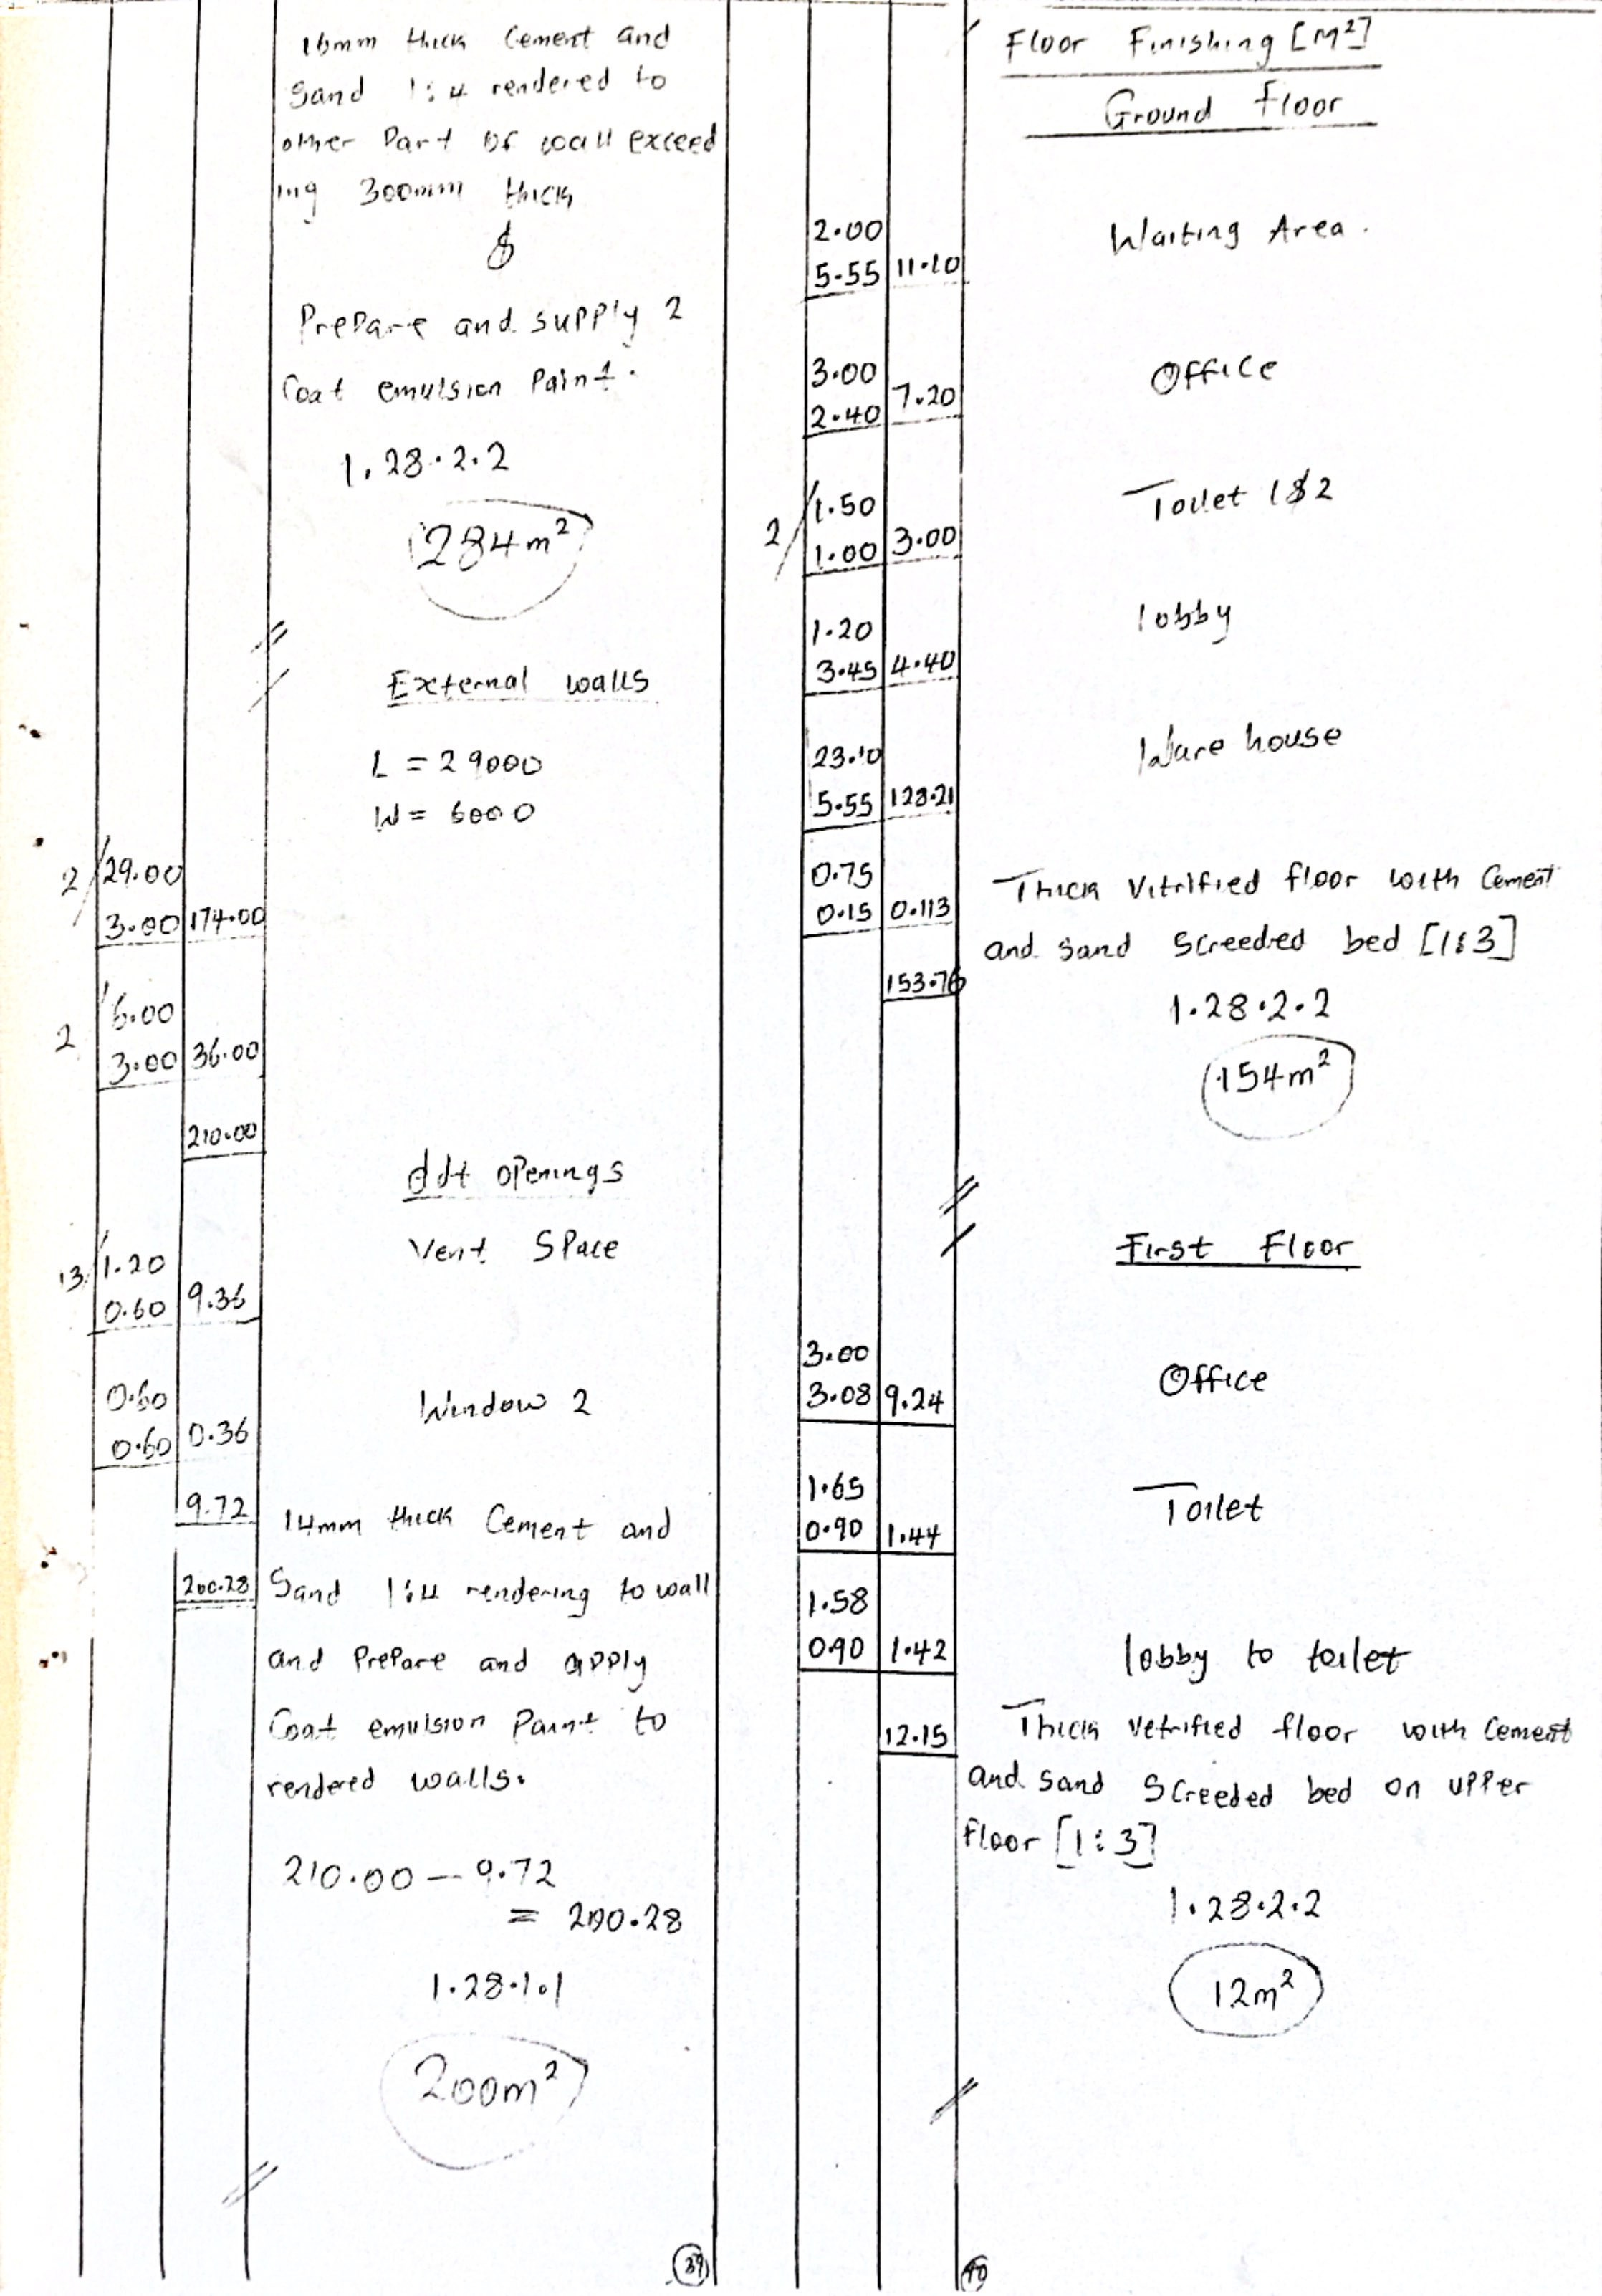 16mm thick Cement and
Sand 1:4 rendered to
other Part of wall exceed
ing 300mm thick
&
Prepare and supply 2
Coat emulsion Paint.
1.28.2.2
284m²
External walls
L = 29000
W = 6000
2/29.00
3.00 174.00
2 6.00
3.00 36.00
210.00
ddt openings
Vent Space
13/1.20
0.60 9.36
Window 2
0.60
0.60 0.36
9.72
14mm thick Cement and
200.28
Sand 1:4 rendering to wall
and Prepare and apply
Coat emulsion Paint to
rendered walls.
210.00 - 9.72
= 200.28
1.28.1.1
200m²
39
Floor Finishing [M²]
Ground floor
2.00
Waiting Area.
5.55 11.10
3.00
Office
2.40 7.20
2/1.50
Toilet 1&2
1.00 3.00
1.20
lobby
3.45 4.40
23.10
Ware house
5.55 128.21
0.75
0.15 0.113
Thick Vitrified floor with Cement
and sand Screeded bed [1:3]
153.76
1.28.2.2
154m²
First Floor
3.00
Office
3.08 9.24
1.65
Toilet
0.90 1.44
1.58
0.90 1.42
lobby to toilet
12.15
Thick Vetrified floor with Cement
and sand Screeded bed on upper
floor [1:3]
1.28.2.2
12m²
40